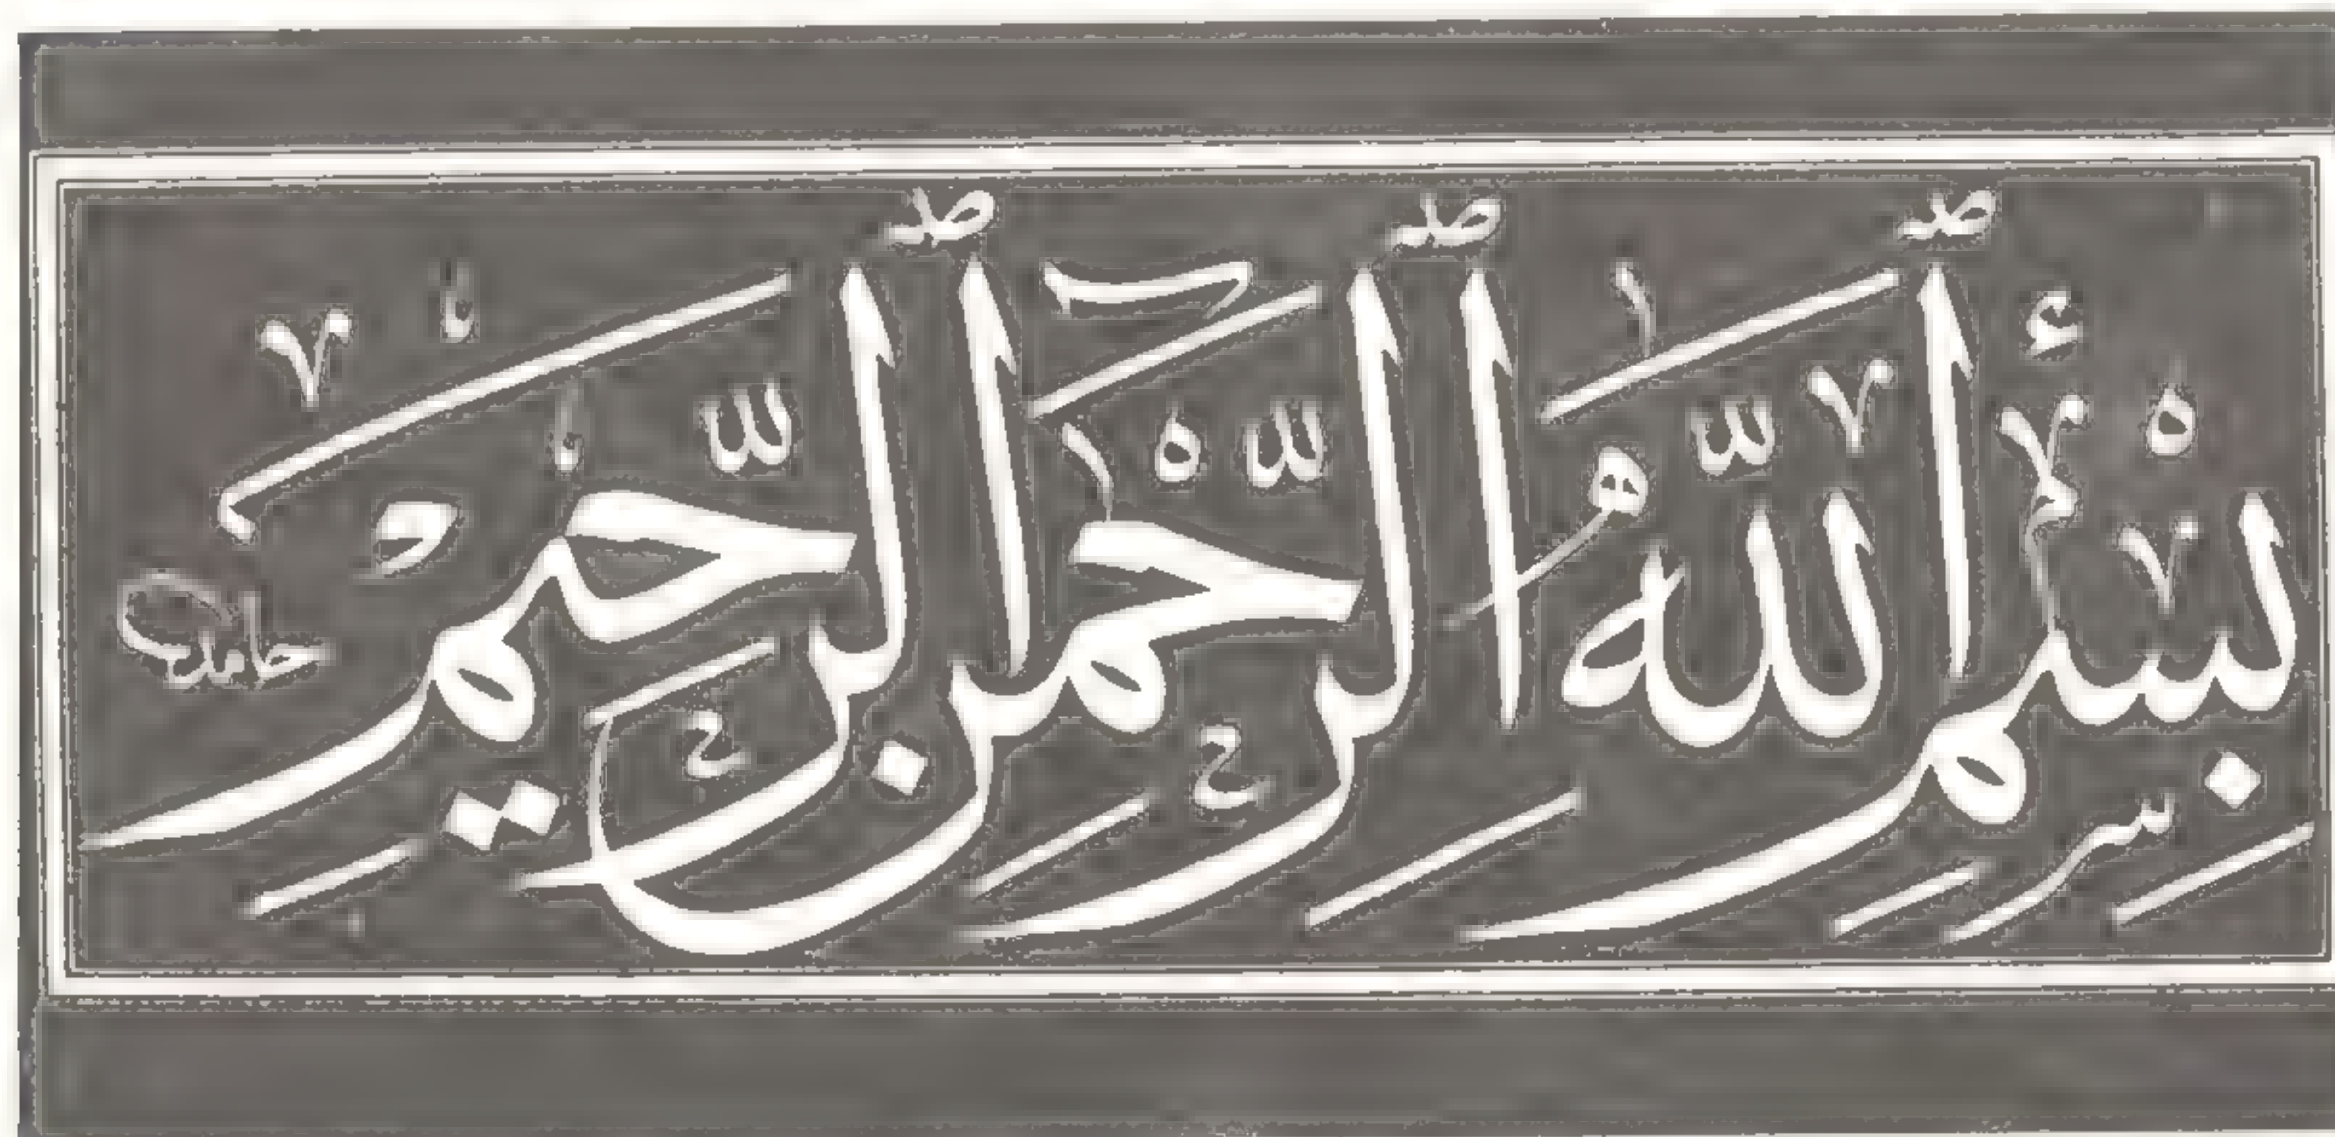 بسم الله الرحمن الرحيم
حامد